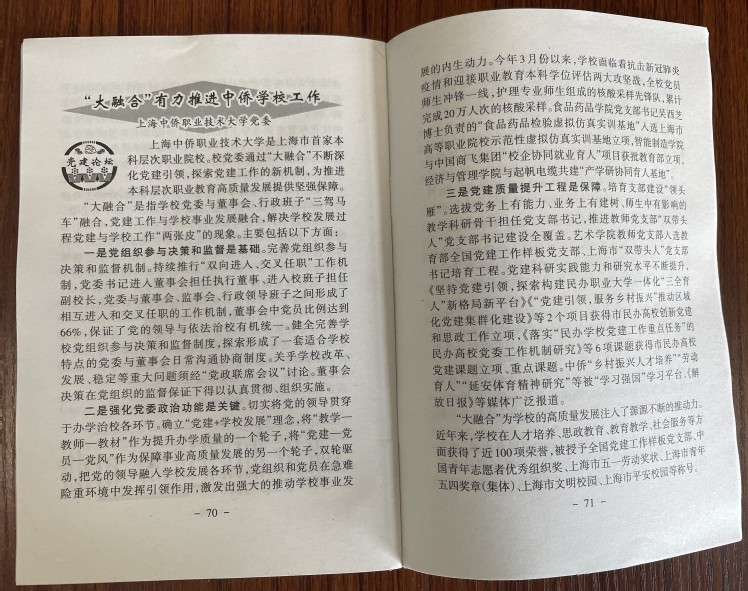 “大融合”有力推进中侨学校工作
上海中侨职业技术大学党委
党建论坛
上海中侨职业技术大学是上海市首家本
科层次职业院校。校党委通过“大融合”不断深
化党建引领,探索党建工作的新机制,为推进
本科层次职业教育高质量发展提供坚强保障。
“大融合”是指学校党委与董事会、行政班子“三驾马
车”融合,党建工作与学校事业发展融合,解决学校发展过
程党建与学校工作“两张皮”的现象。主要包括以下方面:
一是党组织参与决策和监督是基础。完善党组织参与
决策和监督机制。持续推行“双向进入、交叉任职”工作机
制,党委书记进入董事会担任执行董事、进入校班子担任
副校长,党委与董事会、监事会、行政领导班子之间形成了
相互进入和交叉任职的工作机制,董事会中党员比例达到
66%,保证了党的领导与依法治校有机统一。健全完善学
校党组织参与决策和监督制度,探索形成了一套适合学校
特点的党委与董事会日常沟通协商制度。关乎学校改革、
发展、稳定等重大问题须经“党政联席会议”讨论。董事会
决策在党组织的监督保证下得以认真贯彻、组织实施。
二是强化党委政治功能是关键。切实将党的领导贯穿
于办学治校各环节。确立“党建+学校发展”理念,将“教学—
教师—教材”作为提升办学质量的一个轮子,将“党建—党
员—党风”作为保障事业高质量发展的另一个轮子,双轮驱
动,把党的领导融入学校发展各环节,党组织和党员在急难
险重环境中发挥引领作用,激发出强大的推动学校事业发
- 70 -
展的内生动力。今年3月份以来,学校面临着抗击新冠肺炎
疫情和迎接职业教育本科学位评估两大攻坚战,全校党员
师生冲锋一线,护理专业师生组成的核酸采样先锋队,累计
完成20万人次的核酸采样。食品药品学院党支部书记吴西芝
博士负责的“食品药品检验虚拟仿真实训基地”入选上海市
高等职业院校示范性虚拟仿真实训基地立项,智能制造学院
与中国商飞集团“校企协同就业育人”项目获批教育部立项,
经济与管理学院与起帆电缆共建“产学研协同育人基地”。
三是党建质量提升工程是保障。培育支部建设“领头
雁”。选拔党务上有能力、业务上有建树、师生中有影响的
教学科研骨干担任党支部书记,推进教师党支部“双带头
人”党支部书记建设全覆盖。艺术学院教师党支部人选教
育部全国党建工作样板党支部、上海市“双带头人”党支部
书记培育工程。党建科研实践能力和研究水平不断提升,
《坚持党建引领,探索构建民办职业大学一体化“三全育
人”新格局新平台》《“党建引领,服务乡村振兴”推动区域
化党建集群化建设》等2个项目获得市民办高校创新党建
和思政工作立项,《落实“民办学校党建工作重点任务”的
民办高校党委工作机制研究》等6项课题获得市民办高校
党建课题立项、重点课题。中侨“乡村振兴人才培养”“劳动
育人”“延安体育精神研究”等被“学习强国”学习平台、《解
放日报》等媒体广泛报道。
“大融合”为学校的高质量发展注入了源源不断的推动力。
近年来,学校在人才培养、思政教育、教育教学、社会服务等方
面获得了近100项荣誉,被授予全国党建工作样板党支部、中
国青年志愿者优秀组织奖、上海市五一劳动奖状、上海市青年
五四奖章(集体)、上海市文明校园、上海市平安校园等称号。
- 71 -